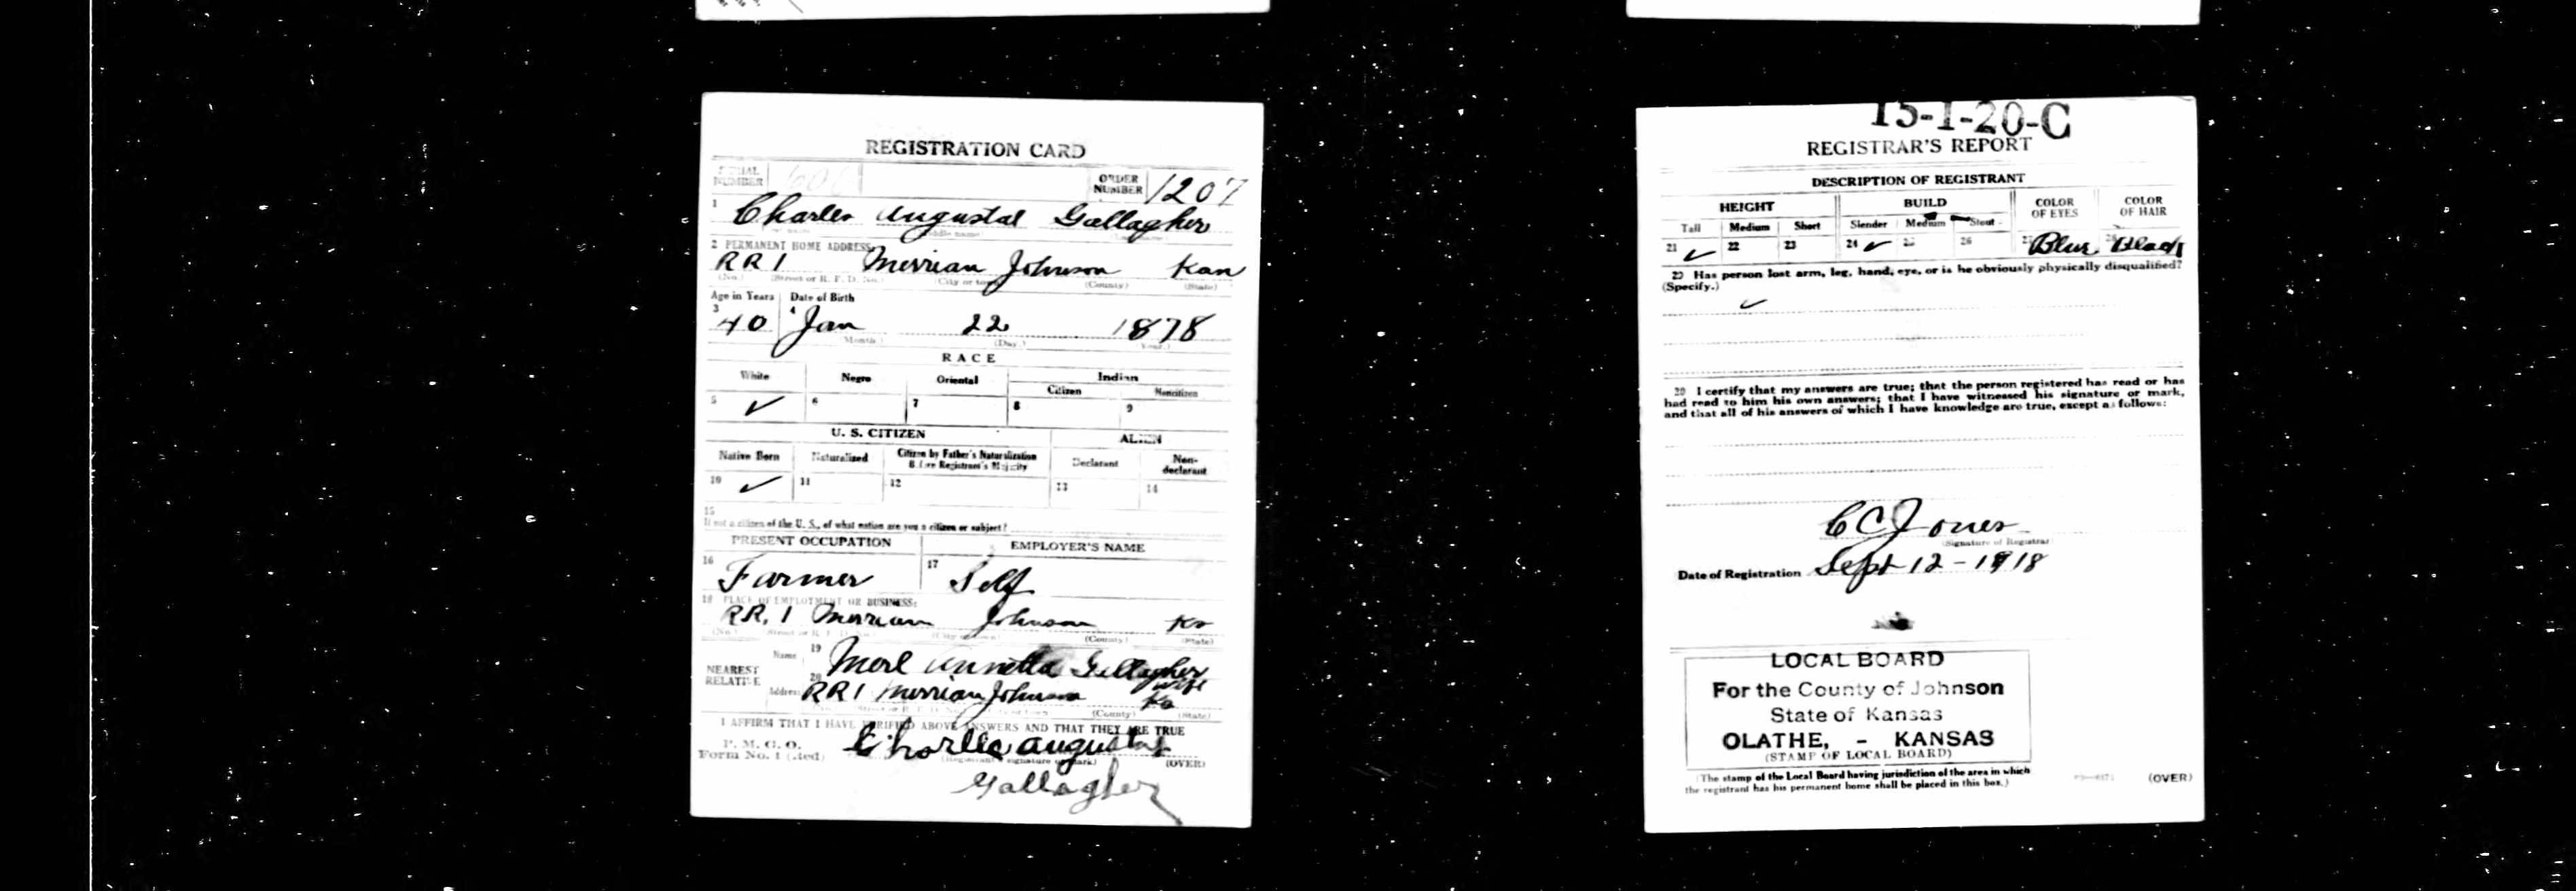 REGISTRATION CARD
SERIAL NUMBER ORDER NUMBER 1207
1 Charles Augustal Gallagher
(Middle name)
2 PERMANENT HOME ADDRESS:
RR 1 Merriam Johnson Kan
(No.) (Street or R. F. D. No.) (City or town) (County) (State)
Age in Years Date of Birth
3 40 4 Jan 22 1878
(Month.) (Day.) (Year.)
RACE
White Negro Oriental Indian
Citizen Noncitizen
5 ✓ 6 7 8 9
U. S. CITIZEN ALIEN
Native Born Naturalized Citizen by Father's Naturalization Before Registrant's Majority Declarant Non-declarant
10 ✓ 11 12 13 14
15
If not a citizen of the U. S., of what nation are you a citizen or subject?
PRESENT OCCUPATION EMPLOYER'S NAME
16 Farmer 17 Self
18 PLACE OF EMPLOYMENT OR BUSINESS:
RR. 1 Merriam Johnson Ks
(No.) (Street or R. F. D. No.) (City or town) (County) (State)
NEAREST RELATIVE Name 19 Merl Annetta Gallagher wife
Address 20 RR 1 Merriam Johnson Ks
(County) (State)
I AFFIRM THAT I HAVE VERIFIED ABOVE ANSWERS AND THAT THEY ARE TRUE
P. M. G. O.
Form No. 1 (Red) Charlie Augustas
(Registrant's signature or mark) (OVER)
Gallagher
15-1-20-C
REGISTRAR'S REPORT
DESCRIPTION OF REGISTRANT
HEIGHT BUILD COLOR OF EYES COLOR OF HAIR
Tall Medium Short Slender Medium Stout
21 ✓ 22 23 24 ✓ 25 26 27 Blue 28 Black
29 Has person lost arm, leg, hand, eye, or is he obviously physically disqualified?
(Specify.)
✓
30 I certify that my answers are true; that the person registered has read or has
had read to him his own answers; that I have witnessed his signature or mark,
and that all of his answers of which I have knowledge are true, except as follows:
C C Jones
(Signature of Registrar)
Date of Registration Sept 12 - 1918
LOCAL BOARD
For the County of Johnson
State of Kansas
OLATHE, - KANSAS
(STAMP OF LOCAL BOARD)
(The stamp of the Local Board having jurisdiction of the area in which
the registrant has his permanent home shall be placed in this box.) (OVER)